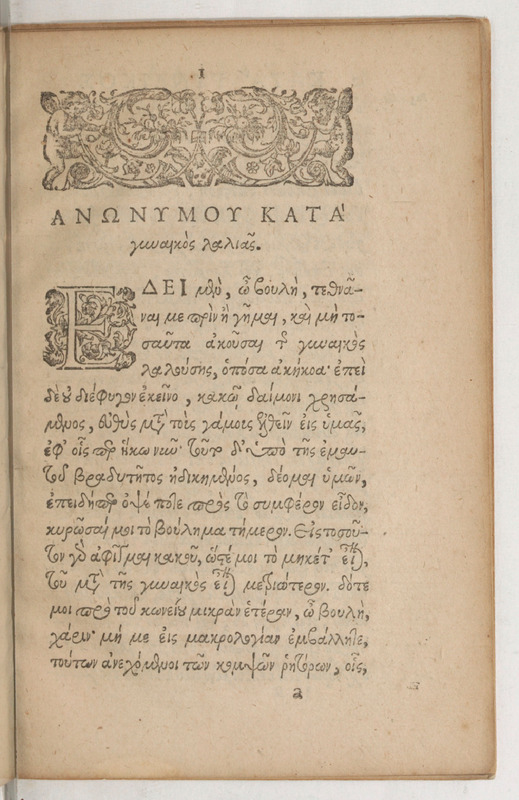 1
ΑΝΩΝΥΜΟΥ ΚΑΤΑ
γυναικὸς λαλιᾶς.
ΕΔΕΙ μὲν, ὦ βουλὴ, τεθνᾶ-
ναι με πρὶν ἢ γῆμαι, καὶ μὴ το-
σαῦτα ἀκοῦσαι τ͂ γυναικὸς
λαλούσης, ὁπόσα ἀκήκοα· ἐπεὶ
δὲ οὐ διέφυγον ἐκεῖνο, κακῷ δαίμονι χρησά-
μενος, εὐθὺς μετὰ τοὺς γάμους ἐλθεῖν εἰς ὑμᾶς,
ἐφ' οἷς περ ἥκω νῦν· νῦν δ' ὑπὸ τῆς ἐμαυ-
τοῦ βραδυτῆτος ἠδικημένος, δέομαι ὑμῶν,
ἐπειδήπερ ὀψέ ποτε πρὸς τὸ συμφέρον εἶδον,
κυρῶσαί μοι τὸ βούλημα τήμερον. Εἰς τοσοῦ-
τον γὰρ ἀφῖγμαι κακοῦ, ὥστέ μοι τὸ μηκέτ' εἶναι,
τοῦ μετὰ τῆς γυναικὸς εἶναι μετριώτερον. δότε
μοι πρὸ τοῦ κωνείου μικρὰν ἑτέραν, ὦ βουλὴ,
χάριν· μή με εἰς μακρολογίαν ἐμβάλλητε,
τούτων ἀνεχόμενοι τῶν κομψῶν ῥητόρων, οἷς,
a